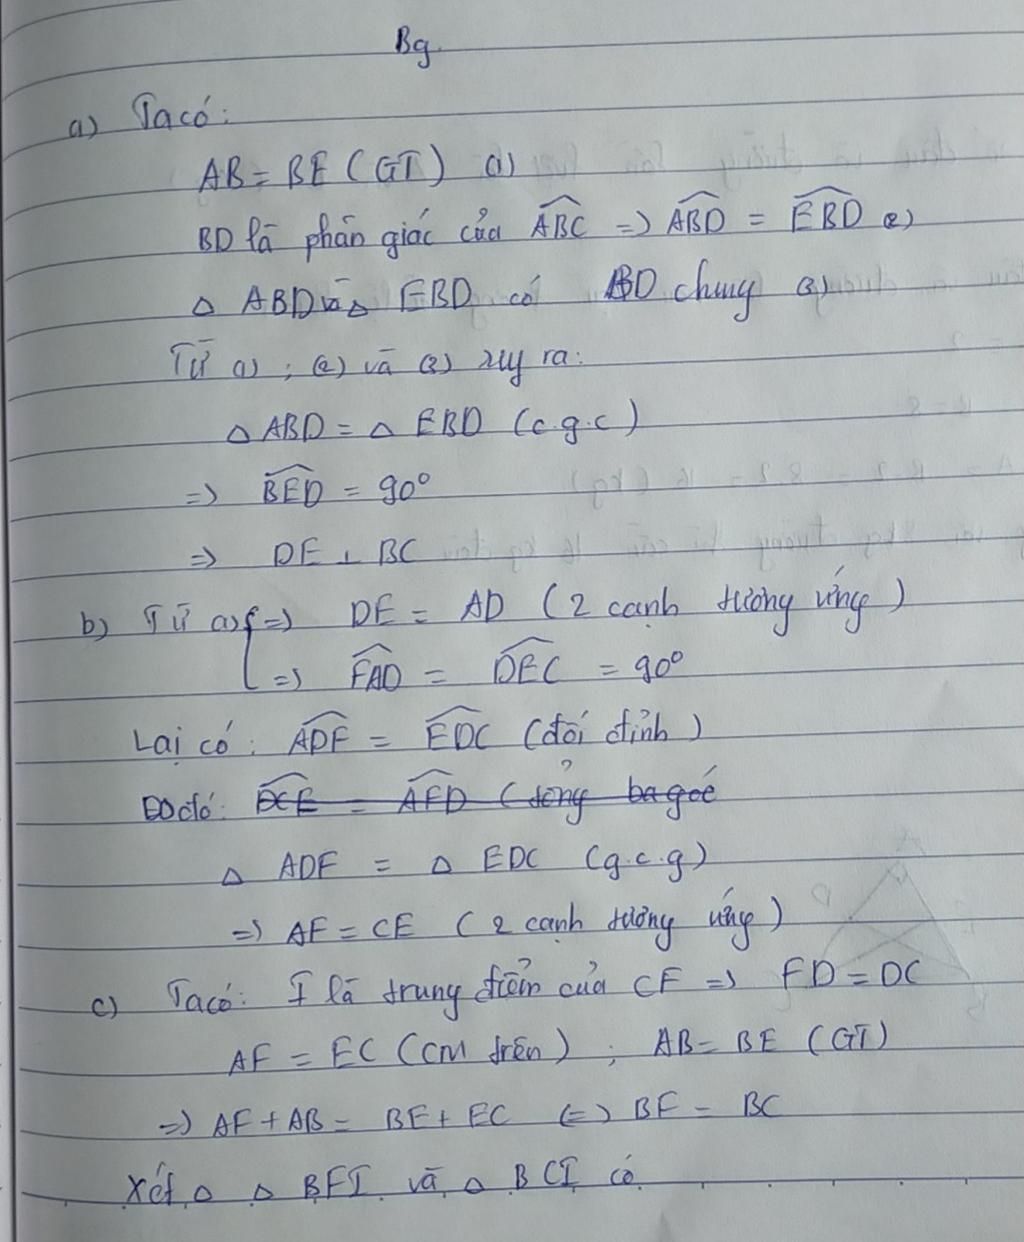 Bg.
a) Ta có:
AB = BE (GT) (1)
BD là phân giác của ABC => ABD = EBD (2)
△ ABD và △ EBD có BD chung (3)
Từ (1) ; (2) và (3) suy ra:
△ ABD = △ EBD (c.g.c)
=> BED = 90°
=> DE ⊥ BC
b) Từ a) { => DE = AD (2 cạnh tương ứng)
=> FAD = DEC = 90°
Lại có: ADF = EDC (đối đỉnh)
Do đó: DCE = AFD (tổng ba góc
△ ADF = △ EDC (g.c.g)
=> AF = CE (2 cạnh tương ứng)
c) Ta có: I là trung điểm của CF => FD = DC
AF = EC (cm trên) ; AB = BE (GT)
=> AF + AB = BE + EC <=> BF = BC
Xét △ △ BFI và △ BCI có